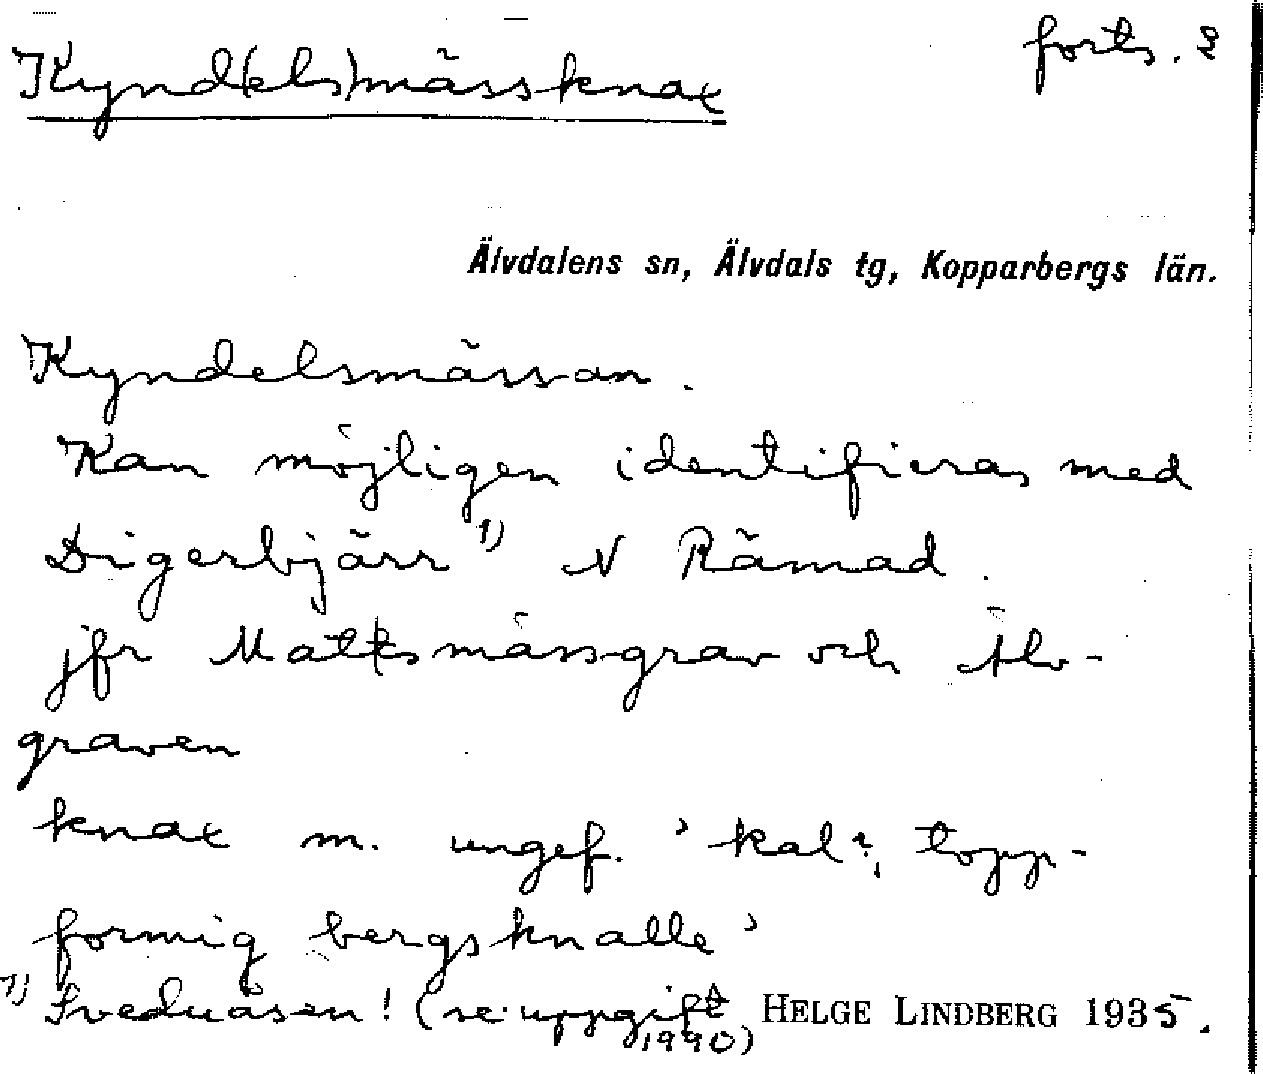 Kynd(els)mässknax
forts. 2
Älvdalens sn, Älvdals tg, Kopparbergs län.
Kyndelsmässan.
Kan möjligen identifieras med
Digerbjärr 1) N Rämad.
jfr Mattsmässgrav och Älv-
graven
knax m. ungef. 'kal?, topp-
formig bergsknalle'
1) Sveduåsen! (se uppgift HELGE LINDBERG 1935.
1990)